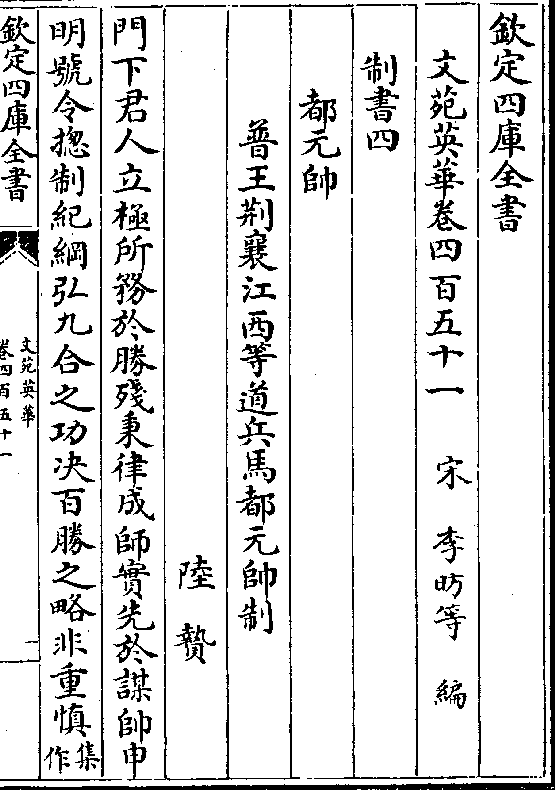 欽定四庫全書
文苑英華卷四百五十一　宋　李昉等　編
制書四
都元帥
普王荆襄江西等道兵馬都元帥制
陸贄
門下君人立極所務於勝殘秉律成師實先於謀帥申
明號令揔制紀綱弘九合之功决百勝之略非重慎集作
欽定四庫全書
文苑英華
卷四百五十一
一